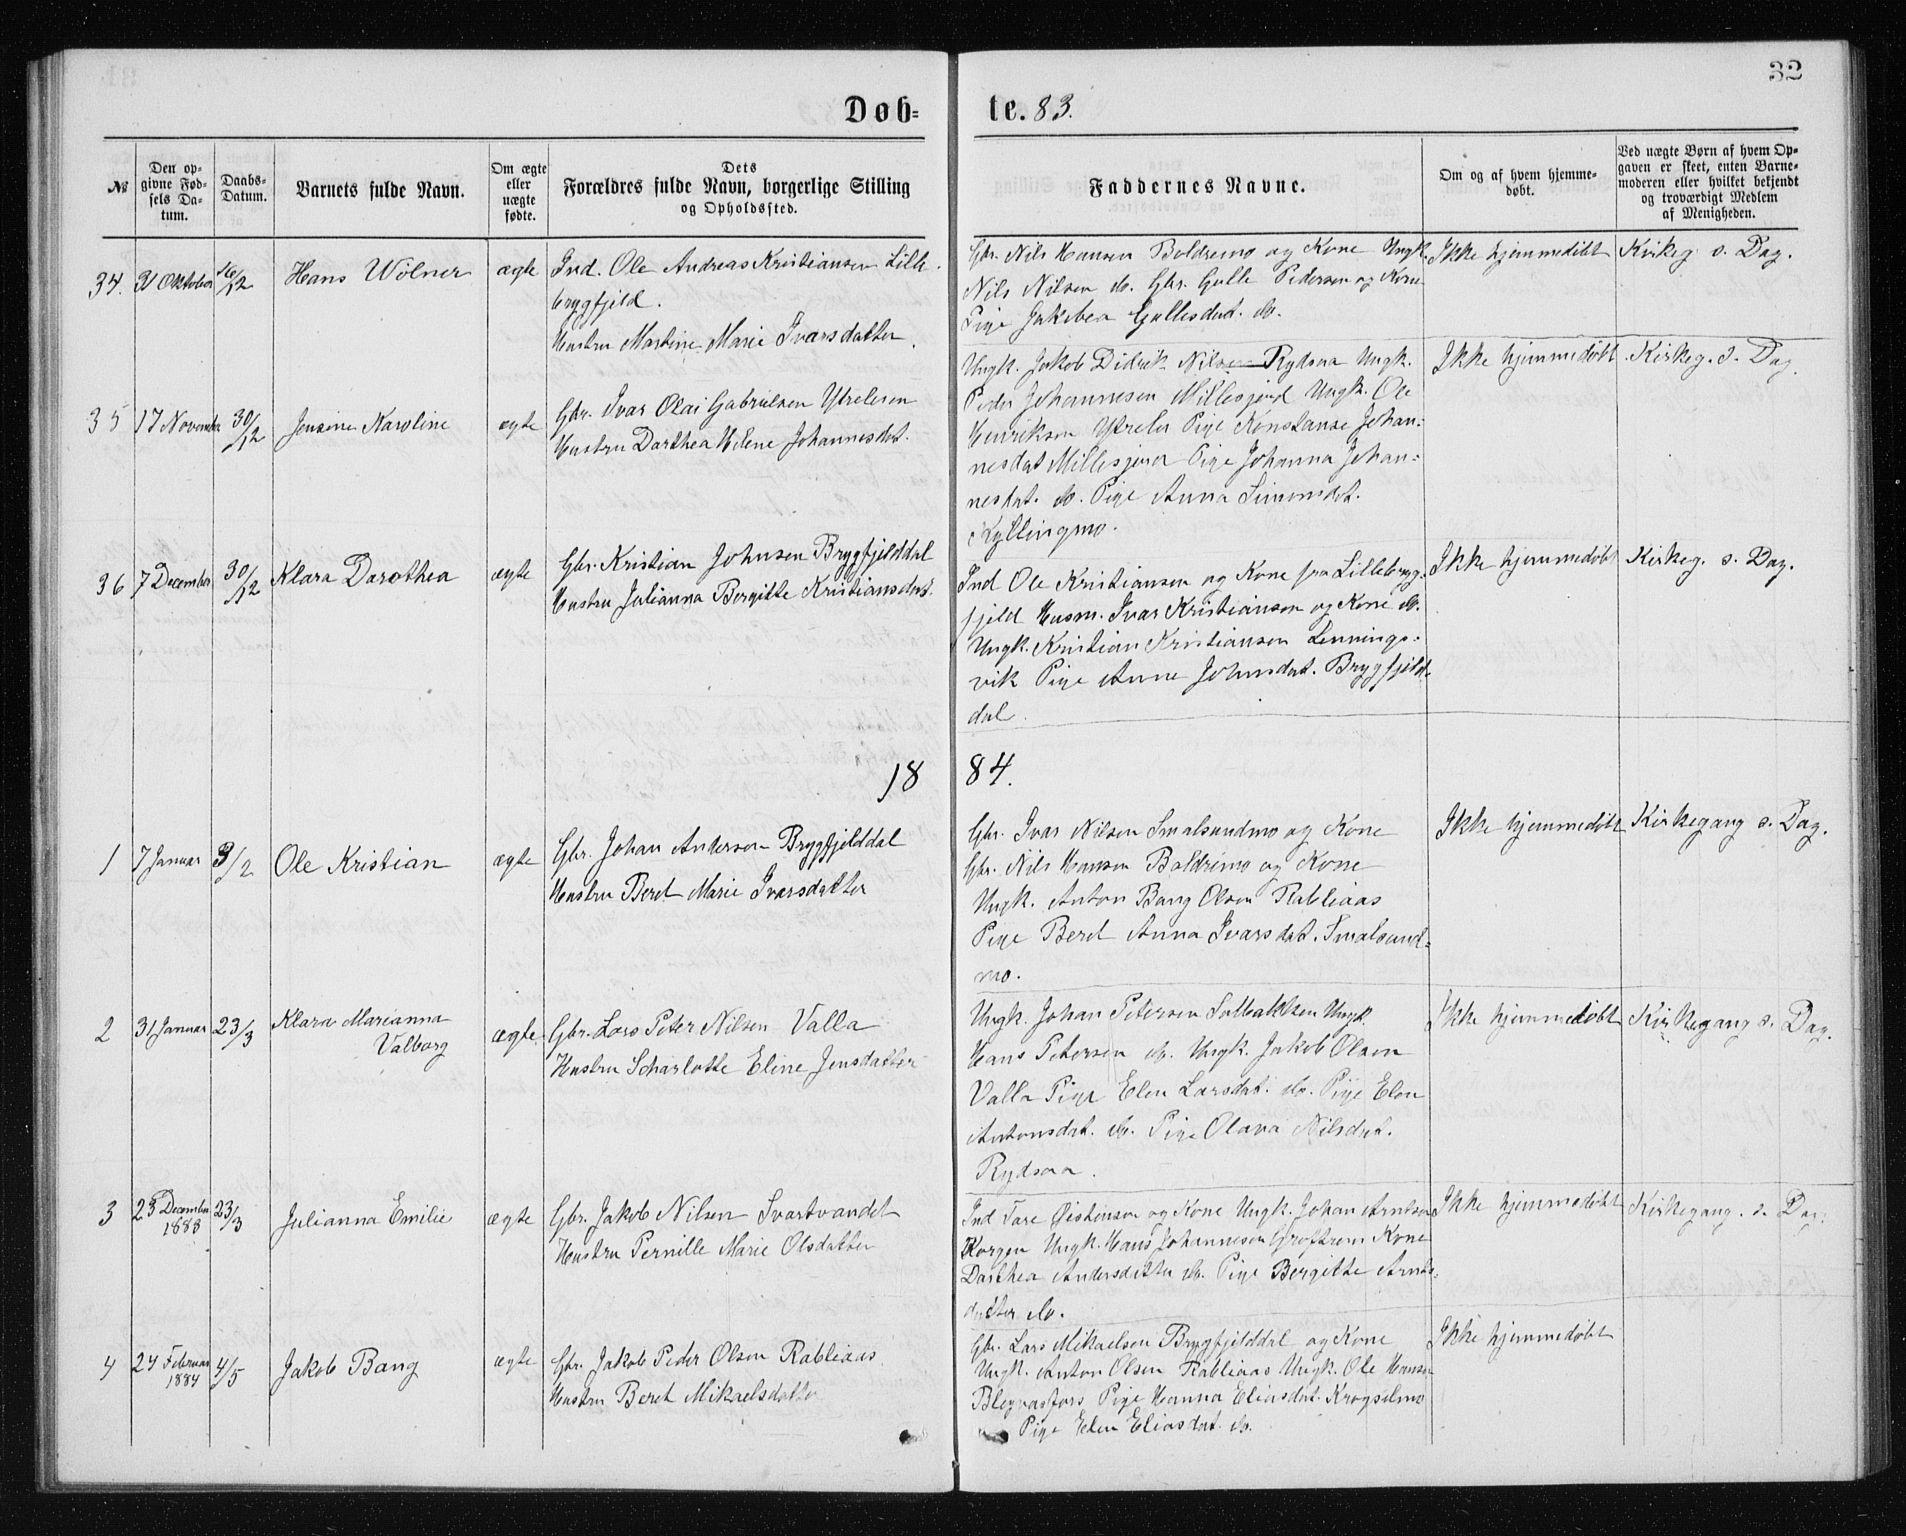 32
Døb=
te. 83.
№
Den op-
givne Fød-
sels Da-
tum.
Daabs-
Datum.
Barnets fulde Navn.
Om ægte
eller
uægte
fødte.
Dets
Forældres fulde Navn, borgerlige Stilling
og Opholdssted.
Faddernes Navne.
Om og af hvem hjemme-
døbt.
Ved uægte Børn af hvem Op-
gaven er skeet, enten Barne-
moderen eller hvilket bekjendt
og troværdigt Medlem
af Menigheden.
34. 31 Oktober 16/12 Hans Wölner ægte Ind. Ole Andreas Kristiansen Lille
brygfjeld.
Hustru Martine Marie Ivarsdatter.
Gbr. Nils Hansen Boldremo og Kone Ungk.
Nils Nilsen do. Gbr. Gulle Pedersen og Kone
Pige Jakobea Gullesdat. do.
Ikke hjemmedøbt
Kirkeg s. Dag.
35 17 November 30/12 Jensine Karoline ægte Gbr. Ivar Olai Gabrielsen Ytreleren
Hustru Dorthea Helene Johannesdat.
Ungk. Jakob Didrik Nilsen Rydsaa Ungk.
Peder Johannesen Millesjord Ungk. Ole
Henriksen Ytreler Pige Konstanse Johan-
nesdat Millesjord Pige Johanna Johan-
nesdat. do. Pige Anna Simonsdat.
Kyllingmo.
Ikke hjemmedøbt
Kirkeg. s. Dag.
36 7 December 30/12 Klara Dorothea ægte Gbr. Kristian Johnsen Brygfjelddal
Hustru Julianna Bergitte Kristiansdat.
Ind Ole Kristiansen og Kone fra Lillebryg-
fjeld Husm. Ivar Kristiansen og Kone do.
Ungk. Kristian Kristiansen Lennings-
vik Pige Anne Johnsdat. Brygfjeld-
dal.
Ikke hjemmedøbt
Kirkeg. s. Dag.
18 84.
1 7 Januar 3/2 Ole Kristian ægte Gbr. Johan Anderson Brygfjelddal
Hustru Beret Marie Ivarsdatter
Gbr. Ivar Nilsen Smalsundmo og Kone
Gbr. Nils Hansen Boldremo og Kone
Ungk. Anton Bang Olsen Rabliaas
Pige Beret Anna Ivarsdat. Smalsund-
mo.
Ikke hjemmedøbt
Kirkegang s. Dag.
2 31 Januar 23/3 Klara Marianna
Valborg
ægte Gbr. Lars Peter Nilsen Valla
Hustru Scharlotte Eline Jensdatter
Ungk. Johan Petersen Solbakken Ungk.
Hans Petersen do. Ungk. Jakob Olsen
Valla Pige Elen Larsdat. do. Pige Elen
Antonsdat. do. Pige Olava Nilsdat.
Rydsaa.
Ikke hjemmedøbt
Kirkegang s. Dag.
3 23 December
1883 23/3 Julianna Emilie ægte Gbr. Jakob Nilsen Svartvandet
Hustru Pernille Marie Olsdatter
Ind Tore Øistensen og Kone Ungk. Johan Arntsen
Korgen Ungk. Hans Johannesen Kone
Dorthea Andersdatter do. Pige Bergitte Arnts-
datter do.
Ikke hjemmedøbt
Kirkegang. s. Dag.
4 24 Februar
1884 4/5 Jakob Bang ægte Gbr. Jakob Peder Olsen Rabliaas
Hustru Beret Mikaelsdatter
Gbr. Lars Mikaelsen Brygfjelddal og Kone
Ungk. Anton Olsen Rabliaas Ungk. Ole Hansen
Blegvasfors Pige Hanna Eliasdat. Krogselmo
Pige Elen Eliasdat. do.
Ikke hjemmedøbt